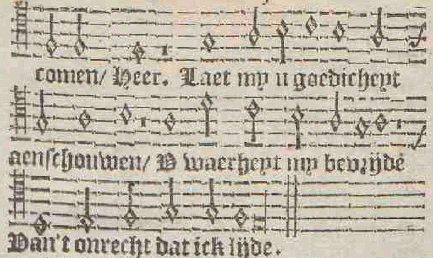 comen/ Heer. Laet my u goedicheyt
aenschouwen/ V waerheyt my bevrijde
Van't onrecht dat ick lijde.